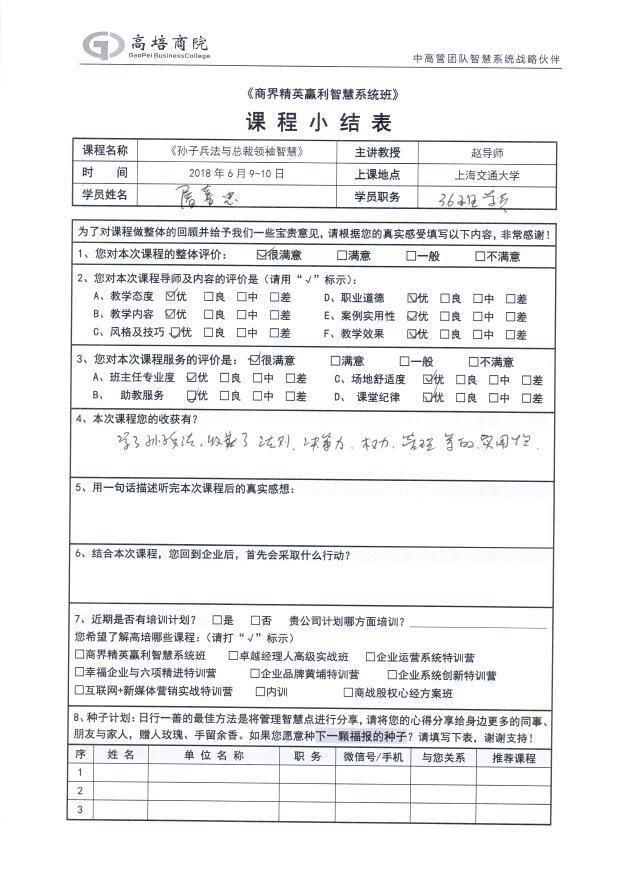 高培商院
GaoPei BusinessCollege
中高管团队智慧系统战略伙伴
《商界精英赢利智慧系统班》
课程小结表
课程名称 《孙子兵法与总裁领袖智慧》 主讲教授 赵导师
时 间 2018年6月9-10日 上课地点 上海交通大学
学员姓名 学员职务 36班学员
为了对课程做整体的回顾并给予我们一些宝贵意见,请根据您的真实感受填写以下内容,非常感谢!
1、您对本次课程的整体评价: ☑很满意 □满意 □一般 □不满意
2、您对本次课程导师及内容的评价是(请用“√”标示):
A、教学态度 ☑优 □良 □中 □差 D、职业道德 ☑优 □良 □中 □差
B、教学内容 ☑优 □良 □中 □差 E、案例实用性 ☑优 □良 □中 □差
C、风格及技巧 ☑优 □良 □中 □差 F、教学效果 ☑优 □良 □中 □差
3、您对本次课程服务的评价是: ☑很满意 □满意 □一般 □不满意
A、班主任专业度 ☑优 □良 □中 □差 C、场地舒适度 ☑优 □良 □中 □差
B、 助教服务 ☑优 □良 □中 □差 D、 课堂纪律 ☑优 □良 □中 □差
4、本次课程您的收获有?
学了孙子兵法,收获了法则、决策力、权力、管理等的实用性.
5、用一句话描述听完本次课程后的真实感想:
6、结合本次课程,您回到企业后,首先会采取什么行动?
7、近期是否有培训计划? □是 □否 贵公司计划哪方面培训?
您希望了解高培哪些课程:(请打“√”标示)
□商界精英赢利智慧系统班 □卓越经理人高级实战班 □企业运营系统特训营
□幸福企业与六项精进特训营 □企业品牌黄埔特训营 □企业系统创新特训营
□互联网+新媒体营销实战特训营 □内训 □商战股权心经方案班
8、种子计划:日行一善的最佳方法是将管理智慧点进行分享,请将您的心得分享给身边更多的同事、
朋友与家人,赠人玫瑰、手留余香。如果您愿意种下一颗福报的种子?请填写下表,谢谢支持!
序 姓 名 单 位 名 称 职 务 微信号/手机 与您关系 推荐课程
1
2
3